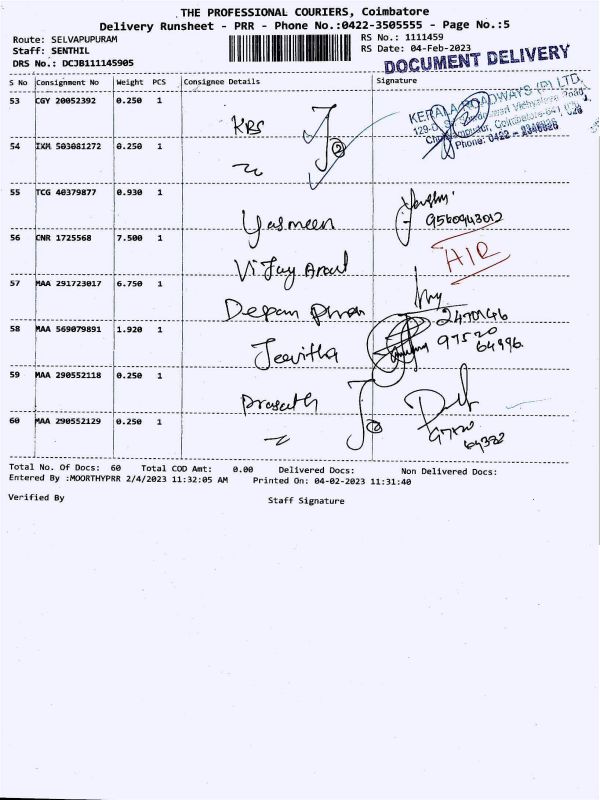 THE PROFESSIONAL COURIERS, Coimbatore
Delivery Runsheet - PRR - Phone No.:0422-3505555 - Page No.:5
Route: SELVAPUPURAM
RS No.: 1111459
Staff: SENTHIL
RS Date: 04-Feb-2023
DRS No.: DCJB111145905
DOCUMENT DELIVERY
S No Consignment No Weight PCS Consignee Details Signature
53 CGY 20052392 0.250 1 KBS
KERALA ROADWAYS (P) LTD.
Phone: 0422 -
54 IXM 503081272 0.250 1
2
55 TCG 40379877 0.930 1 Yasmeen
9560943012
56 CNR 1725568 7.500 1 Vijay
57 MAA 291723017 6.750 1 Deepan
58 MAA 569079891 1.920 1 Jeevitha
2470146
97520
64996
59 MAA 290552118 0.250 1 Prasath
60 MAA 290552129 0.250 1
Total No. Of Docs: 60 Total COD Amt: 0.00 Delivered Docs: Non Delivered Docs:
Entered By :MOORTHYPRR 2/4/2023 11:32:05 AM Printed On: 04-02-2023 11:31:40
Verified By Staff Signature